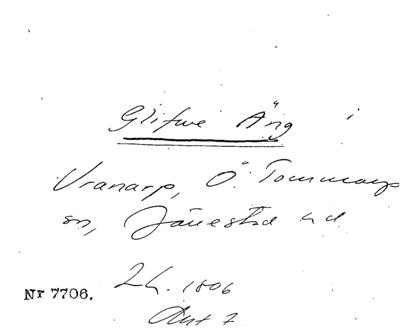 Glifwe Äng i
Vranarp, Ö. Tommarp
sn, Järrestad hd
2 L. 1806
Nr 7706.
Akt 7